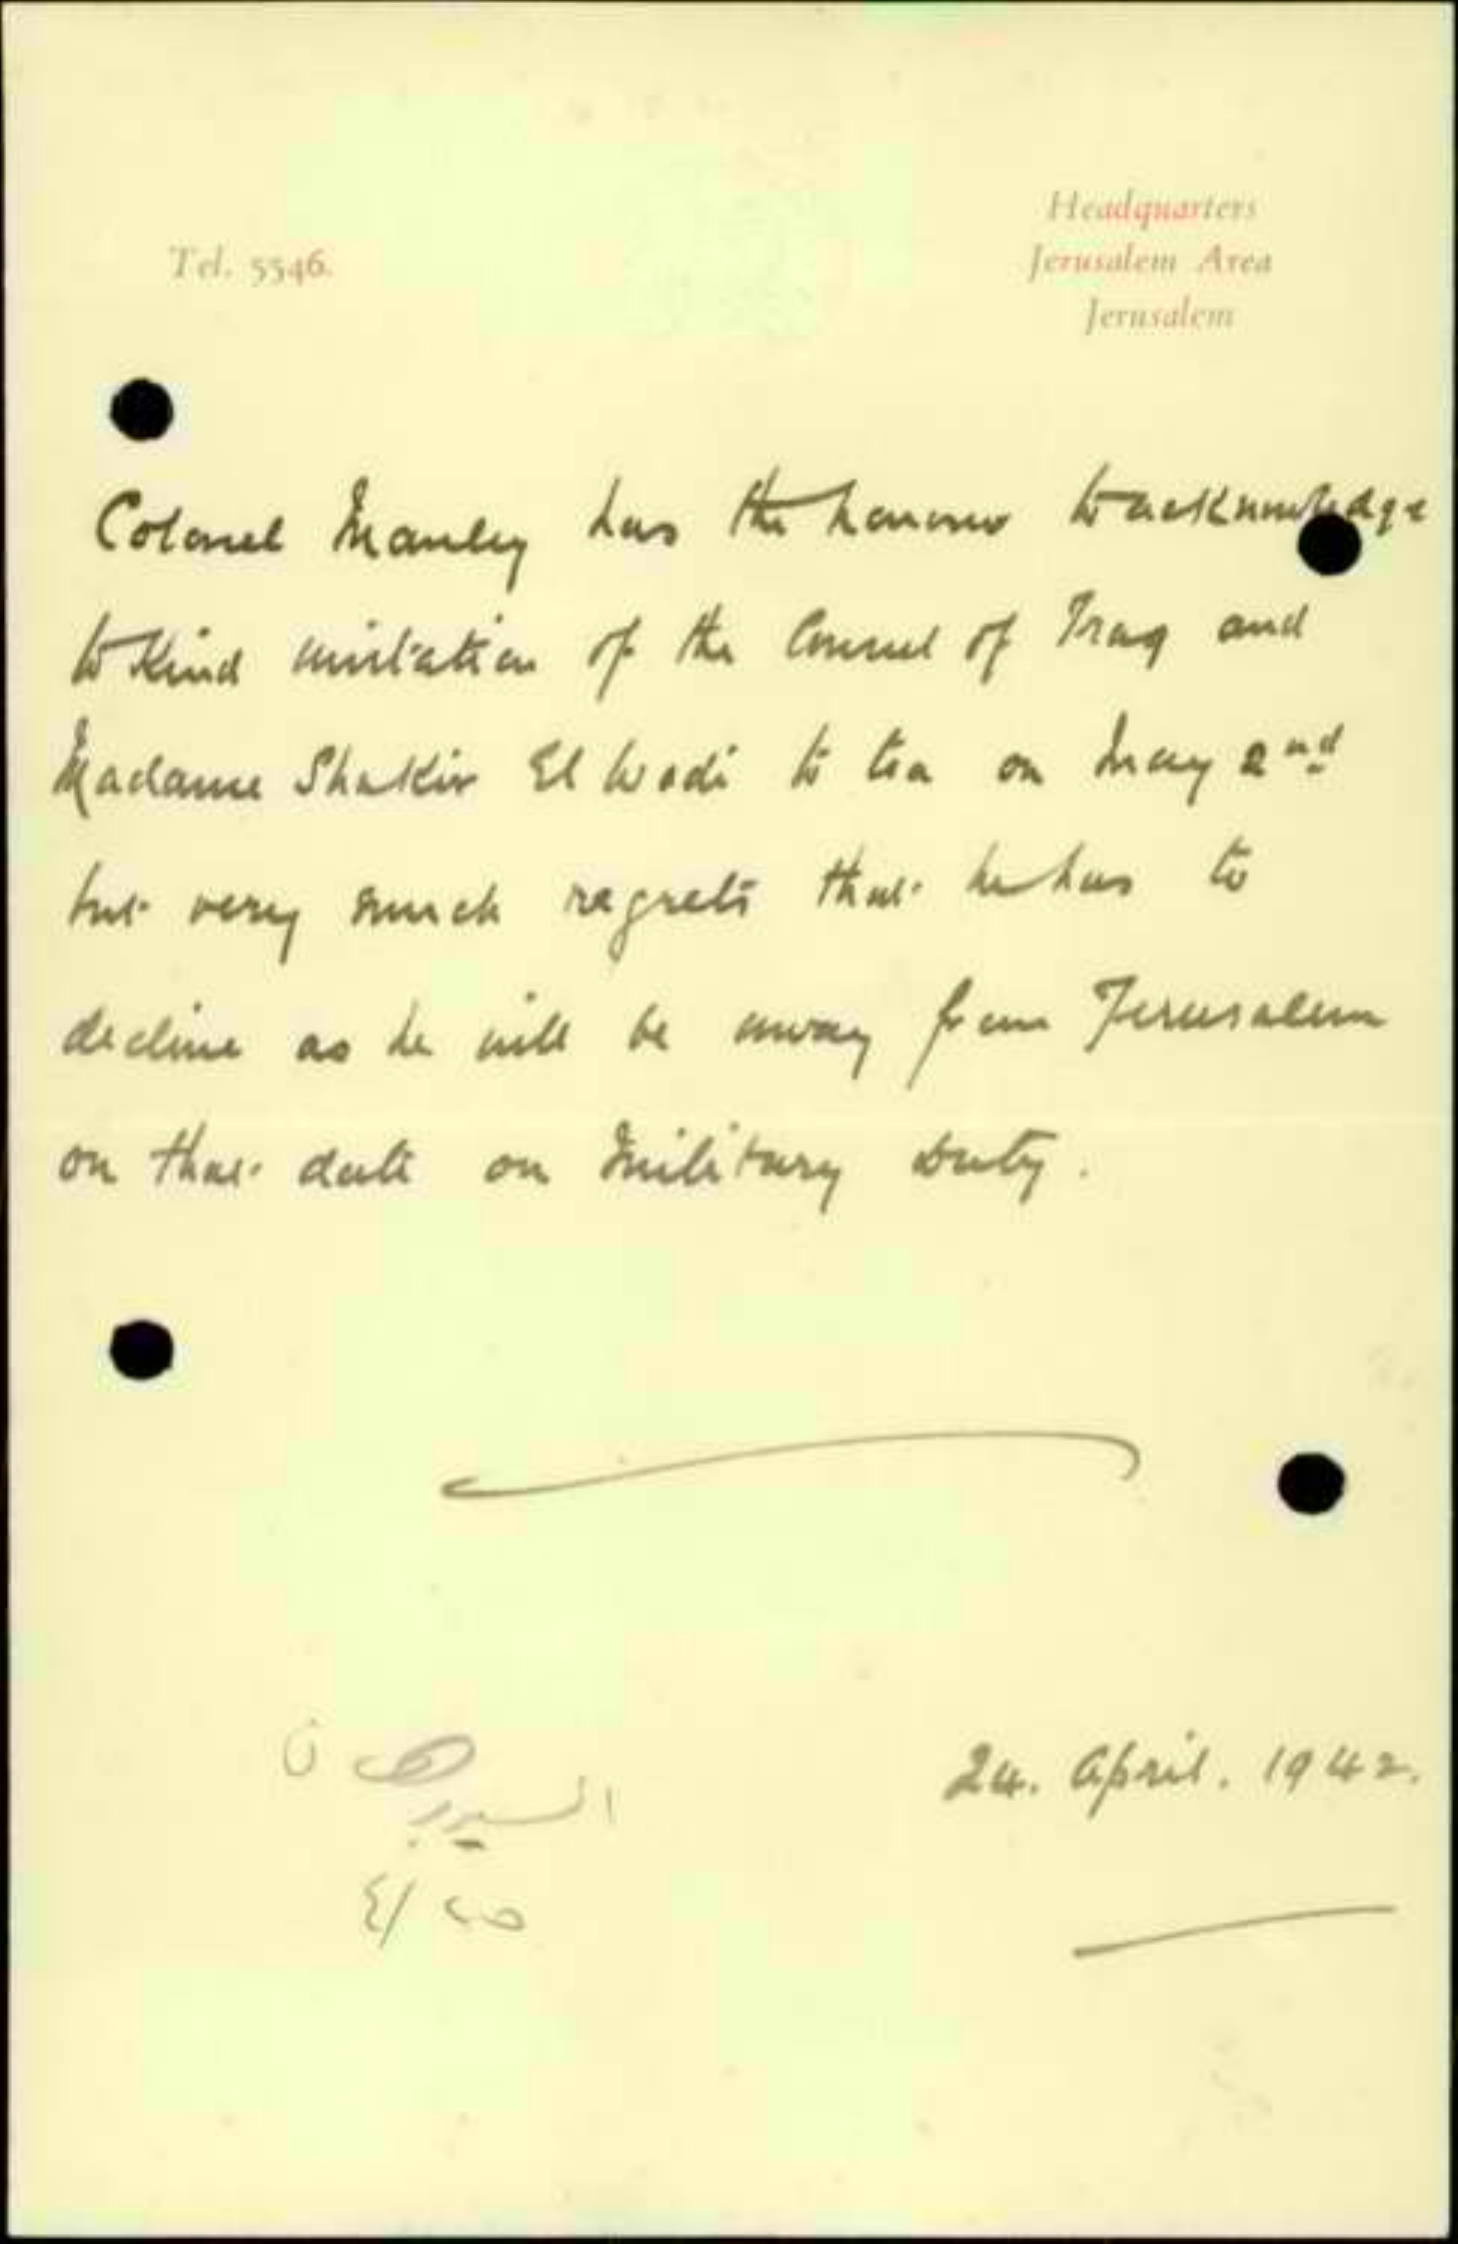 Headquarters
Tel. 5546.
Jerusalem Area
Jerusalem
Colonel Manley has the honour to acknowledge
to kind invitation of the Consul of Iraq and
Madame Shakir El Wadi to tea on May 2nd
but very much regrets that he has to
decline as he will be away from Jerusalem
on that date on military duty.
24. April. 1942.